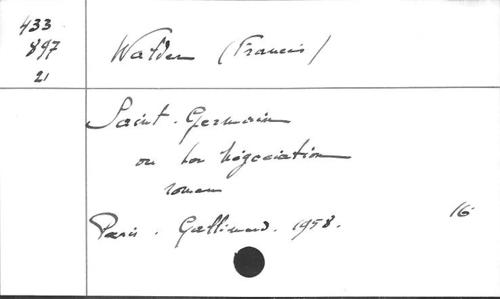 433
897
21
Walder (Francis)
Saint-Germain
ou la négociation
roman
Paris. Gallimard. 1958.
16